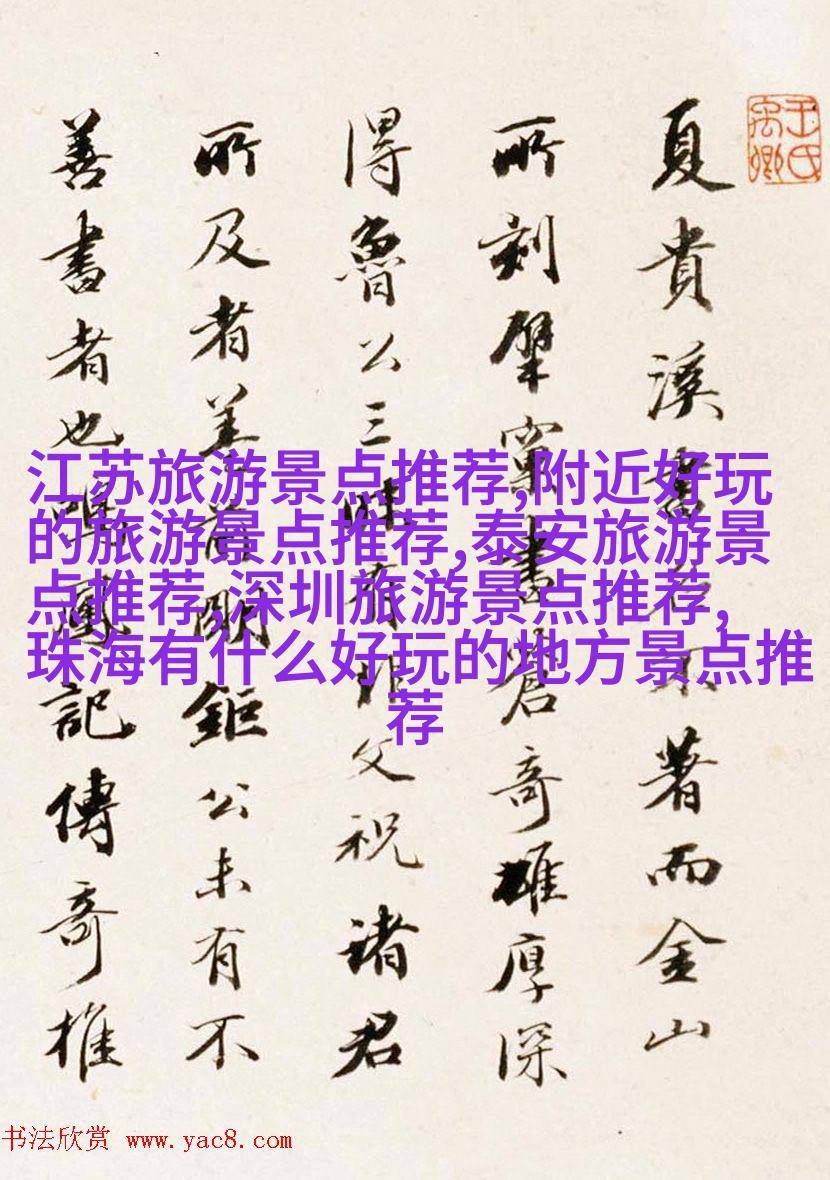 王氏
禹卿
夏貴溪書名不著而金山
所刻擘窠書蒼奇雄厚深
得魯公三昧非文祝諸君
所及者盖前明鉅公未有不
善書者也鳴鳳記傳奇推
江苏旅游景点推荐,附近好玩
的旅游景点推荐,泰安旅游景
点推荐,深圳旅游景点推荐,
珠海有什么好玩的地方景点推
荐
书法欣赏 www.yac8.com